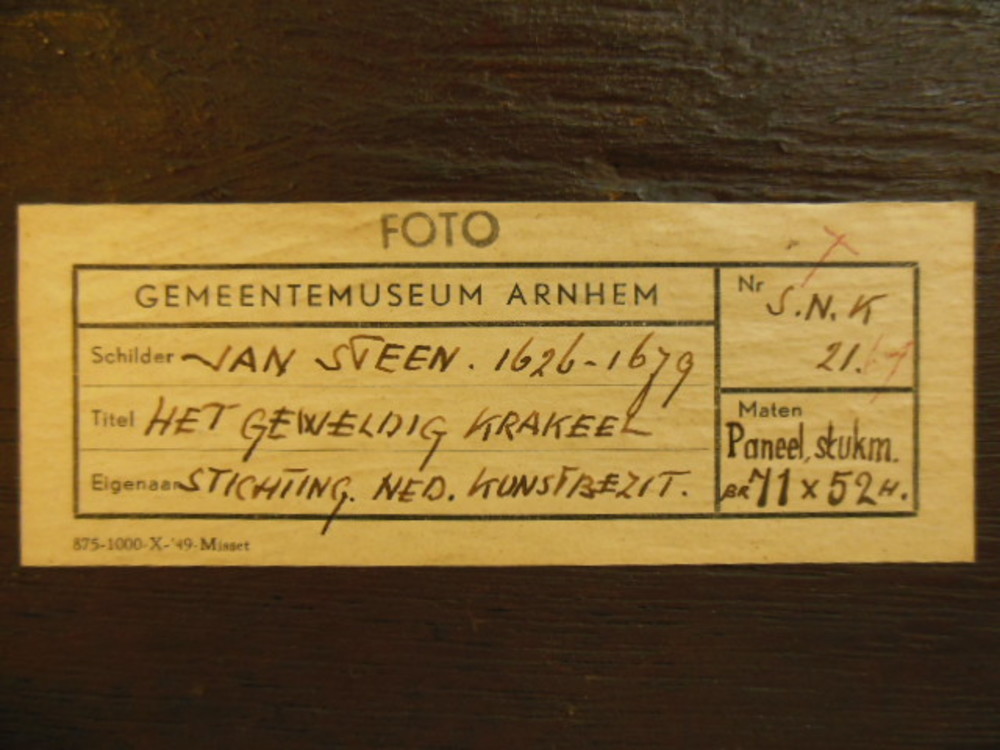 FOTO
GEMEENTEMUSEUM ARNHEM
Schilder JAN STEEN. 1626-1679
Titel HET GEWELDIG KRAKEEL
Eigenaar STICHTING. NED. KUNSTBEZIT.
Nr S.N.K
21.
Maten
Paneel, stukm.
BR 71 x 52 H.
875-1000-X-'49-Misset